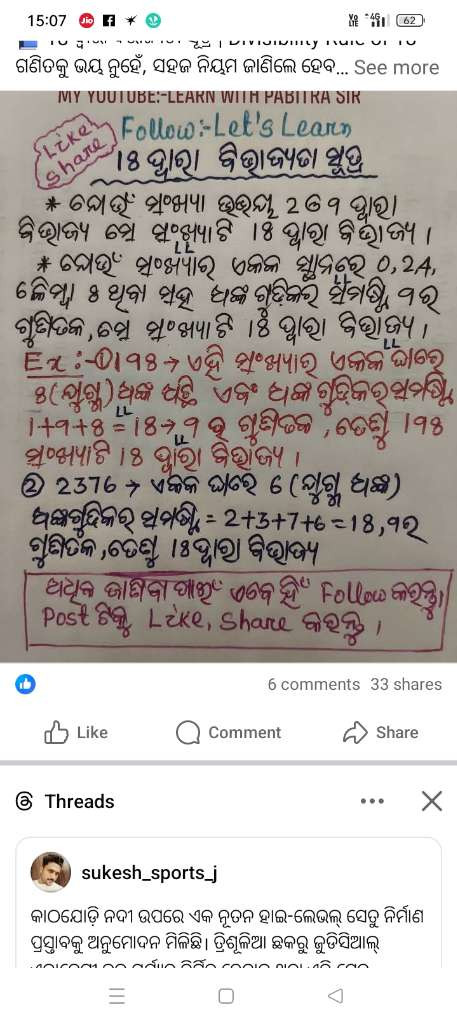 15:07
62
ଗଣିତକୁ ଭୟ ନୁହେଁ, ସହଜ ନିୟମ ଜାଣିଲେ ହେବ... See more
MY YOUTUBE:-LEARN WITH PABITRA SIR
Like Share
Follow:-Let's Learn
18 ଦ୍ୱାରା ବିଭାଜ୍ୟତା ସୂତ୍ର
* ଯେଉଁ ସଂଖ୍ୟା ଉଭୟ 2 ଓ ୨ ଦ୍ୱାରା
ବିଭାଜ୍ୟ ସେ ସଂଖ୍ୟାଟି 18 ଦ୍ୱାରା ବିଭାଜ୍ୟ ।
* ଯେଉଁ ସଂଖ୍ୟାର ଏକକ ସ୍ଥାନରେ 0, 2, 4,
କିମ୍ବା 8 ଥିବା ସହ ଅଙ୍କଗୁଡ଼ିକର ସମଷ୍ଟି ୨ର
ଗୁଣିତକ, ସେ ସଂଖ୍ୟାଟି 18 ଦ୍ୱାରା ବିଭାଜ୍ୟ ।
Ex:-① 1୨8 → ଏହି ସଂଖ୍ୟାର ଏକକ ଘରେ
8 (ଯୁଗ୍ମ) ଅଙ୍କ ଅଛି ଏବଂ ଅଙ୍କଗୁଡ଼ିକର ସମଷ୍ଟି
1+୨+8 = 18 → ୨ ର ଗୁଣିତକ, ତେଣୁ 1୨8
ସଂଖ୍ୟାଟି 18 ଦ୍ୱାରା ବିଭାଜ୍ୟ ।
② 2376 → ଏକକ ଘରେ 6 (ଯୁଗ୍ମ ଅଙ୍କ)
ଅଙ୍କଗୁଡ଼ିକର ସମଷ୍ଟି = 2+3+7+6 = 18, ୨ର
ଗୁଣିତକ, ତେଣୁ 18 ଦ୍ୱାରା ବିଭାଜ୍ୟ
ଅଧିକ ଜାଣିବା ପାଇଁ ଏବେ ହିଁ Follow କରନ୍ତୁ।
Post ଟିକୁ Like, Share କରନ୍ତୁ ।
6 comments 33 shares
Like Comment Share
Threads
sukesh_sports_j
କାଠଯୋଡ଼ି ନଦୀ ଉପରେ ଏକ ନୂତନ ହାଇ-ଲେଭଲ୍ ସେତୁ ନିର୍ମାଣ
ପ୍ରସ୍ତାବକୁ ଅନୁମୋଦନ ମିଳିଛି। ତ୍ରିଶୂଳିଆ ଛକରୁ ଜୁଡିସିଆଲ୍